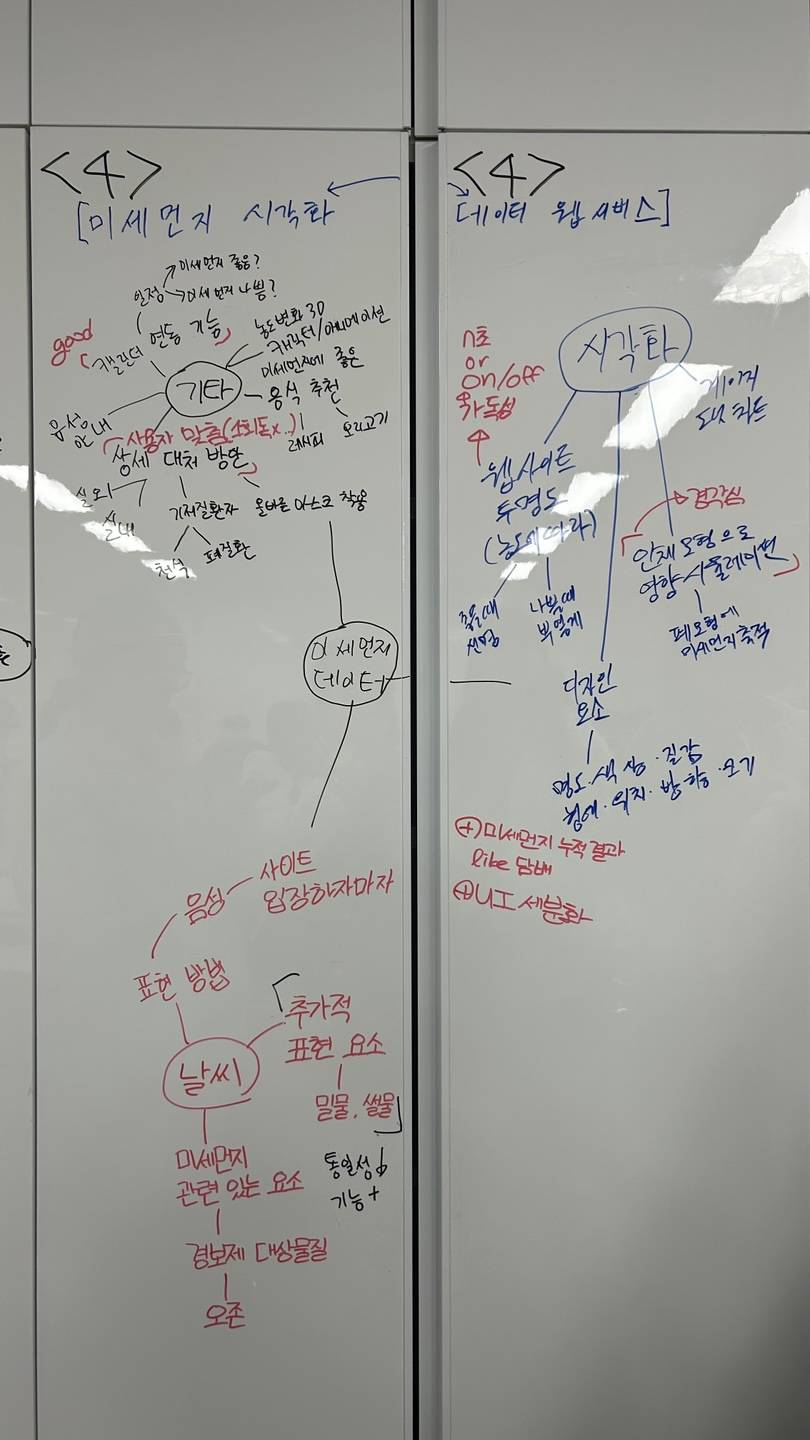 <4>
[미세먼지 시각화
미세먼지 좋음?
일정
미세먼지 나쁨?
good
캘린더 연동 기능
농도변화 3D
캐릭터/애니메이션
기타
미세먼지에 좋은
음식 추천
레시피
오리고기
음성
안내
사용자 맞춤(1회독x..)
상세 대처 방안
실외
실내
기저질환자
올바른 마스크 착용
천식
폐질환
미세먼지
데이터
음성
사이트
입장하자마자
표현 방법
날씨
추가적
표현 요소
밀물, 썰물
통일성↓
기능+
미세먼지
관련 있는 요소
경보제 대상물질
오존
<4>
데이터 웹 서비스]
시각화
n초
or
on/off
가독성
웹사이트
투명도
(농도에 따라)
좋을때
선명
나쁠때
뿌옇게
게이지
도넛 차트
경각심
인체 모형으로
영향 시뮬레이션
폐 모형에
미세먼지 축적
디자인
요소
명도·색상·질감
형태·위치·방향·크기
⊕미세먼지 누적 결과
like 담배
⊕UI 세분화